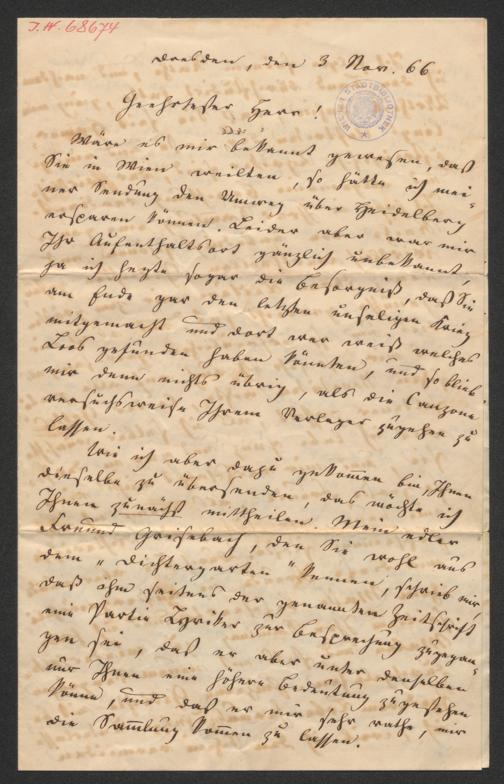 I.N. 68674
Dresden, den 3 Nov. 66
WIENER STADTBIBLIOTHEK
Geehrtester Herr!
Wäre es mir bekannt gewesen, daß
Sie in Wien weilten, so hätte ich mei-
ner Sendung den Umweg über Heidelberg
ersparen können. Leider aber war mir
Ihr Aufenthaltsort gänzlich unbekannt,
ja ich hegte sogar die Besorgniß, daß Sie
am Ende gar den letzten unseligen Krieg
mitgemacht und dort wer weiß welches
Loos gefunden haben könnten, und so blieb
mir denn nichts übrig, als die Canzone
versuchsweise Ihrem Verleger zugehen zu
lassen.
Wie ich aber dazu gekommen bin, Ihnen
dieselbe zu übersenden, das möchte ich
Ihnen zunächst mittheilen. Mein edler
Freund Grisebach, den Sie wohl aus
dem "Dichtergarten" kennen, schrieb mir,
daß ihm seitens der genannten Zeitschrift
eine Partie Lyriker zur Besprechung zugegan-
gen sei, daß er aber unter denselben
nur Ihnen eine höhere Bedeutung zugestehen
könne, und daß er mir sehr rathe, mir
die Sammlung kommen zu lassen.